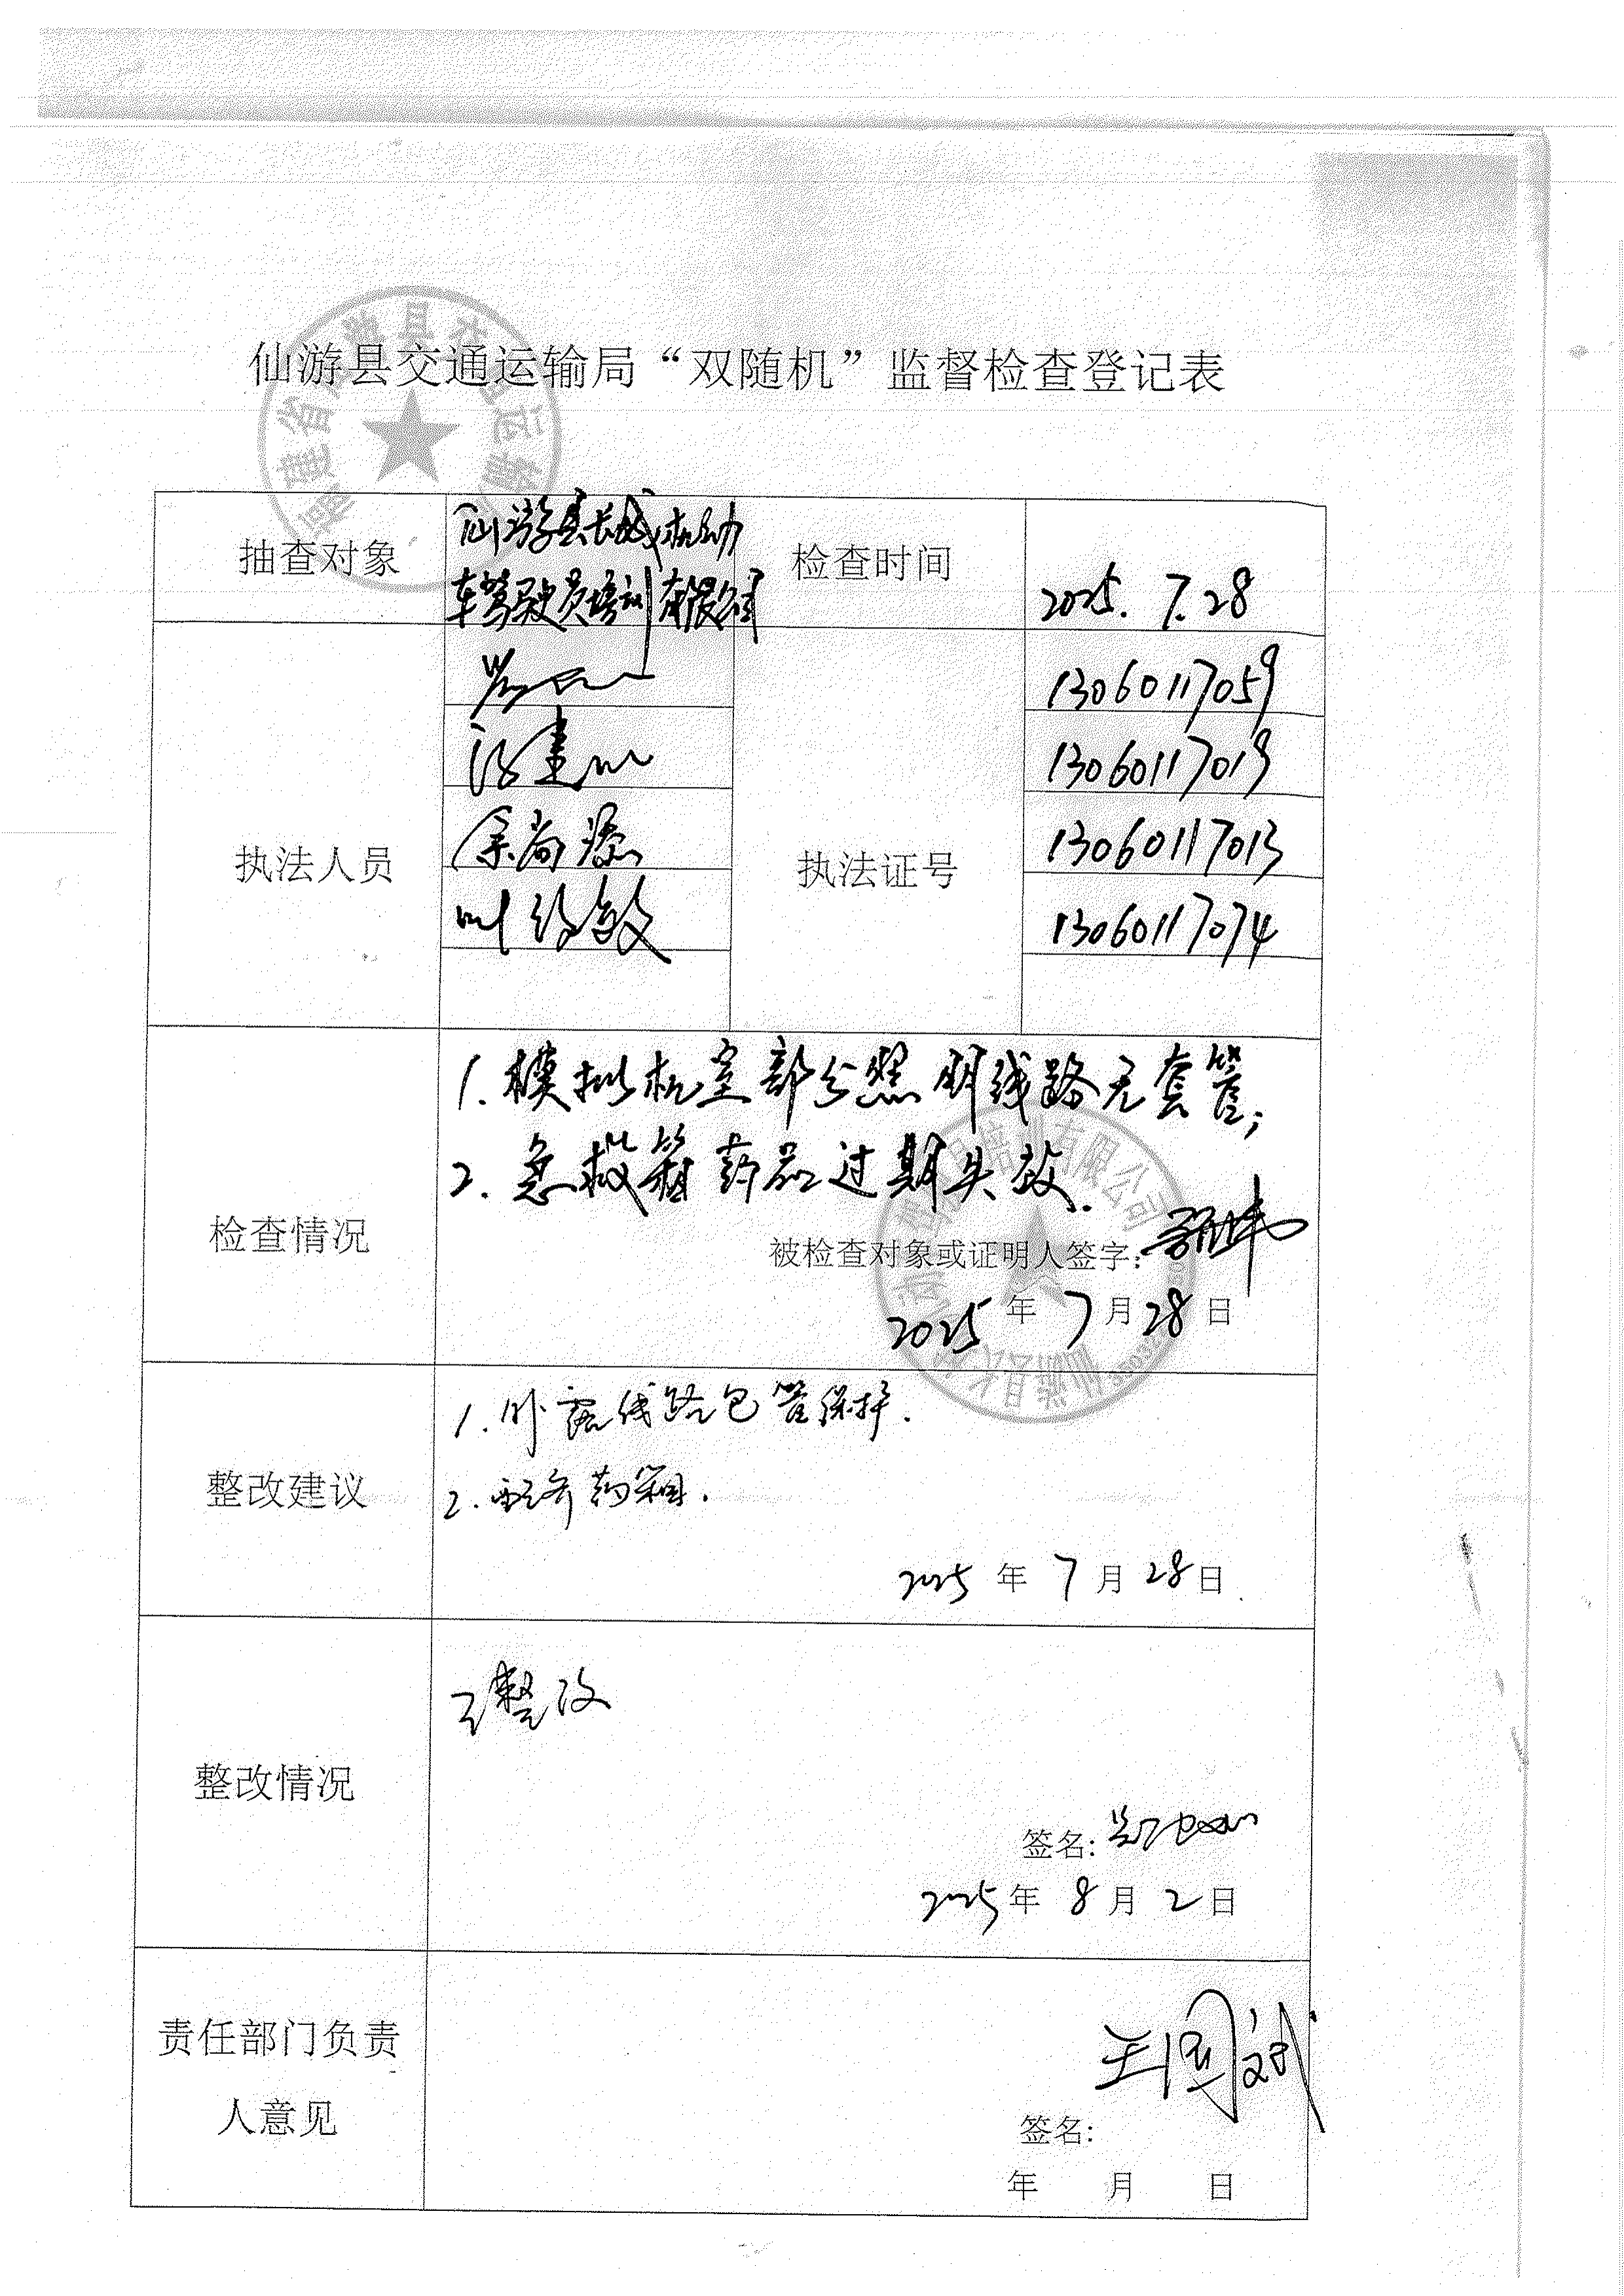 仙游县交通运输局“双随机”监督检查登记表
抽查对象
仙游县长城机动
车驾驶员培训有限公司
检查时间
2025.7.28
执法人员
执法证号
13060117059
13060117019
余尚添
13060117013
13060117074
检查情况
1.模拟机室部分照明线路无套管;
2.急救箱药品过期失效.
被检查对象或证明人签字:
2025年7月28日
整改建议
1.外露线路包管保护.
2.配齐药箱.
2025年7月28日.
整改情况
已整改
签名:
2025年8月2日
责任部门负责
人意见
王国斌
签名:
年 月 日